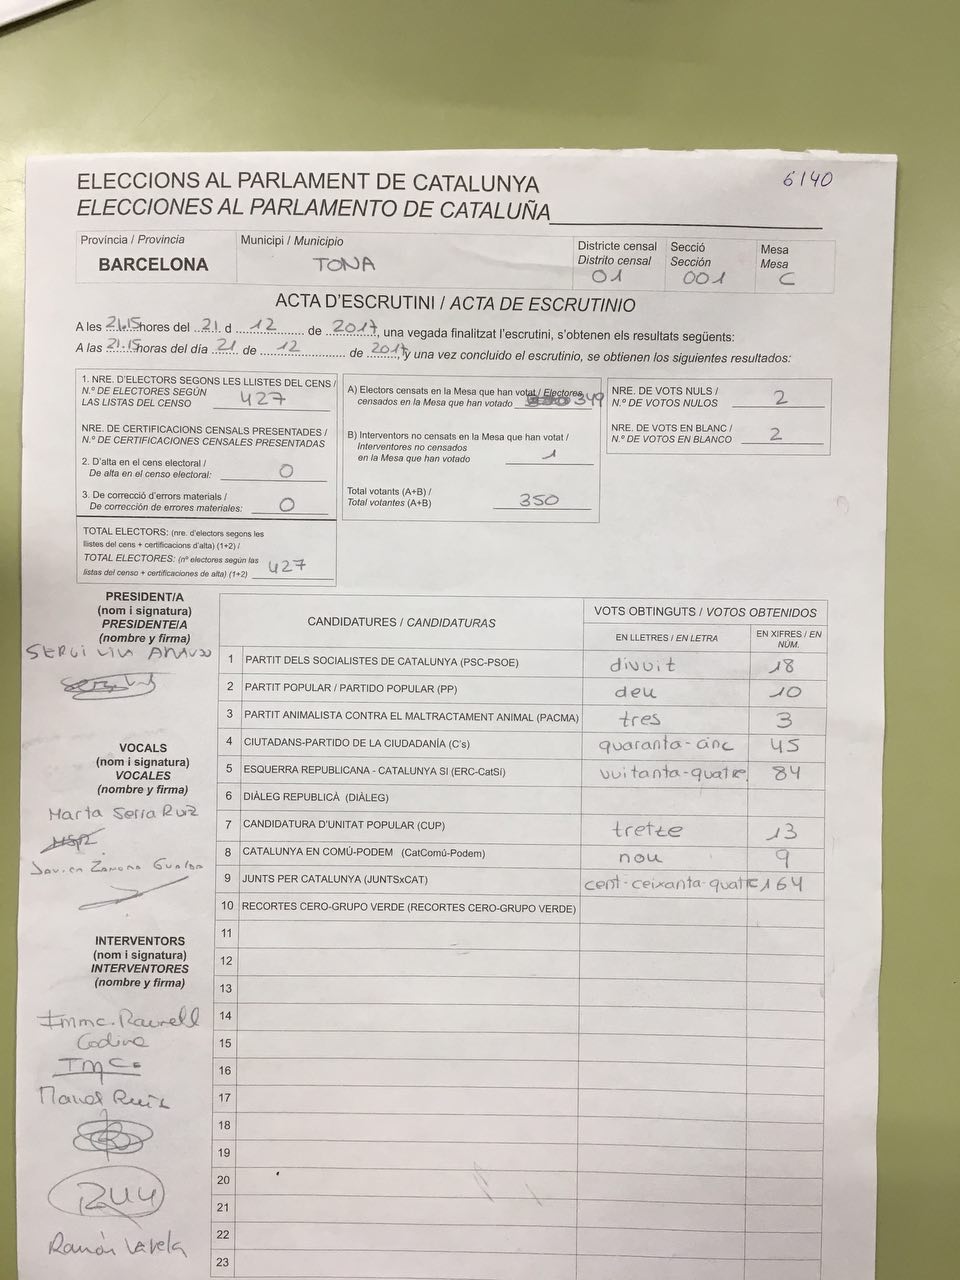 6140
ELECCIONS AL PARLAMENT DE CATALUNYA
ELECCIONES AL PARLAMENTO DE CATALUÑA
Província / Provincia
BARCELONA
Municipi / Municipio
TONA
Districte censal
Distrito censal
01
Secció
Sección
001
Mesa
Mesa
C
ACTA D'ESCRUTINI / ACTA DE ESCRUTINIO
A les 21.15 hores del 21 d 12 de 2017, una vegada finalitzat l'escrutini, s'obtenen els resultats següents:
A las 21.15 horas del día 21 de 12 de 2017, y una vez concluido el escrutinio, se obtienen los siguientes resultados:
1. NRE. D'ELECTORS SEGONS LES LLISTES DEL CENS /
N.º DE ELECTORES SEGÚN
LAS LISTAS DEL CENSO 427
NRE. DE CERTIFICACIONS CENSALS PRESENTADES /
N.º DE CERTIFICACIONES CENSALES PRESENTADAS
2. D'alta en el cens electoral /
De alta en el censo electoral: 0
3. De correcció d'errors materials /
De corrección de errores materiales: 0
TOTAL ELECTORS: (nre. d'electors segons les
llistes del cens + certificacions d'alta) (1+2) /
TOTAL ELECTORES: (nº electores según las
listas del censo + certificaciones de alta) (1+2) 427
A) Electors censats en la Mesa que han votat / Electores
censados en la Mesa que han votado 349
B) Interventors no censats en la Mesa que han votat /
Interventores no censados
en la Mesa que han votado 1
Total votants (A+B) /
Total votantes (A+B) 350
NRE. DE VOTS NULS /
N.º DE VOTOS NULOS 2
NRE. DE VOTS EN BLANC /
N.º DE VOTOS EN BLANCO 2
PRESIDENT/A
(nom i signatura)
PRESIDENTE/A
(nombre y firma)
SERGI
VOCALS
(nom i signatura)
VOCALES
(nombre y firma)
Marta Serra Ruiz
Javier Zamora
INTERVENTORS
(nom i signatura)
INTERVENTORES
(nombre y firma)
Imma. Raurell
Codina
Manel Ruiz
Ramón Varela
CANDIDATURES / CANDIDATURAS
VOTS OBTINGUTS / VOTOS OBTENIDOS
EN LLETRES / EN LETRA
EN XIFRES / EN
NÚM.
1 PARTIT DELS SOCIALISTES DE CATALUNYA (PSC-PSOE) divuit 18
2 PARTIT POPULAR / PARTIDO POPULAR (PP) deu 10
3 PARTIT ANIMALISTA CONTRA EL MALTRACTAMENT ANIMAL (PACMA) tres 3
4 CIUTADANS-PARTIDO DE LA CIUDADANÍA (C's) quaranta-cinc 45
5 ESQUERRA REPUBLICANA - CATALUNYA SI (ERC-CatSí) vuitanta-quatre 84
6 DIÀLEG REPUBLICÀ (DIÀLEG)
7 CANDIDATURA D'UNITAT POPULAR (CUP) tretze 13
8 CATALUNYA EN COMÚ-PODEM (CatComú-Podem) nou 9
9 JUNTS PER CATALUNYA (JUNTSxCAT) cent-ceixanta-quatre 164
10 RECORTES CERO-GRUPO VERDE (RECORTES CERO-GRUPO VERDE)
11
12
13
14
15
16
17
18
19
20
21
22
23